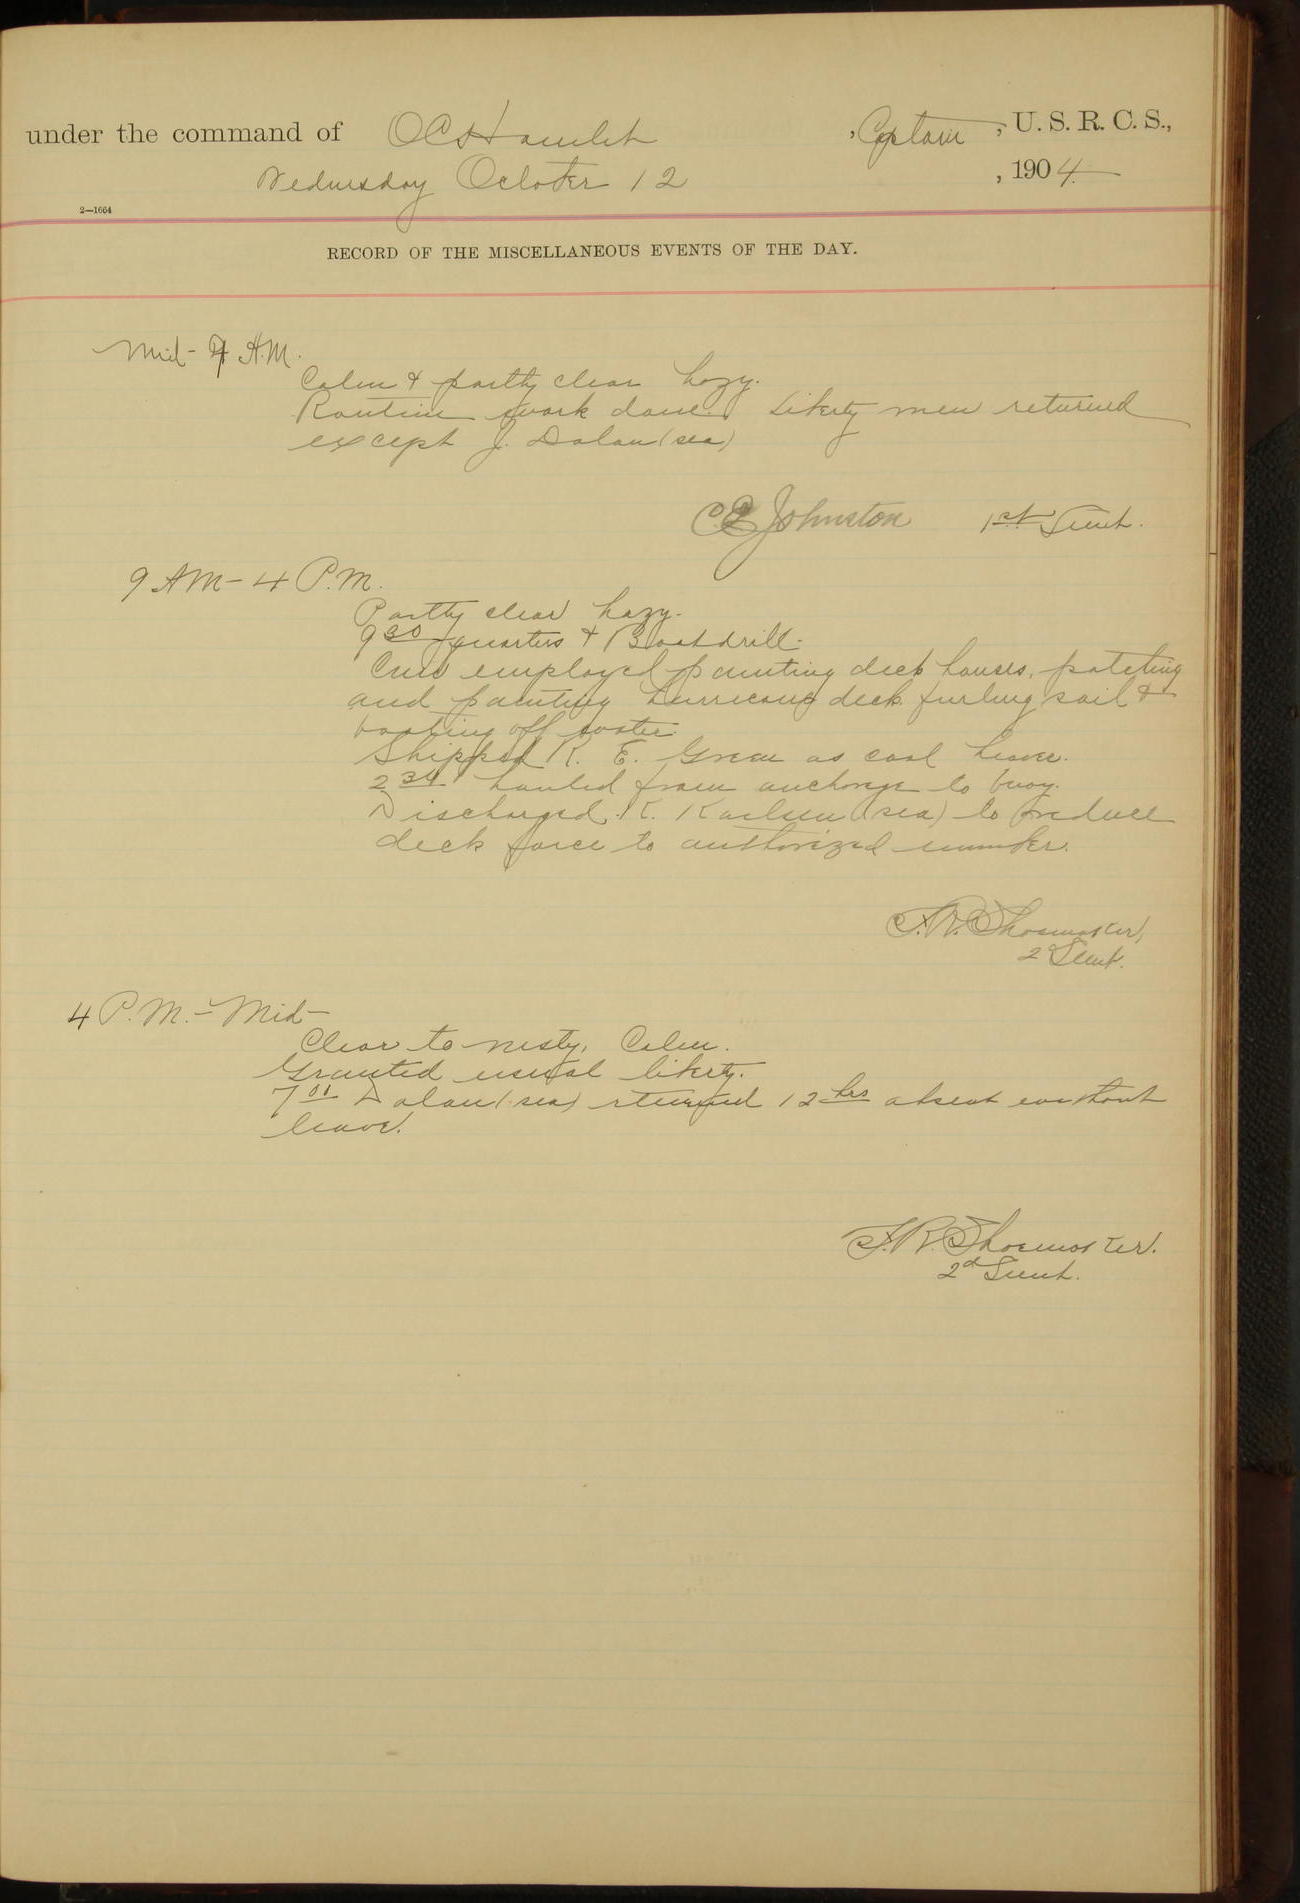 under the command of O C Hamlet, Captain, U. S. R. C. S.,
Wednesday October 12, 1904.
2—1664
RECORD OF THE MISCELLANEOUS EVENTS OF THE DAY.
Mid - 9 A.M.
Calm & partly clear hazy.
Routine work done. Liberty men returned
except J. Dolan (sea)
C E Johnston 1st Lieut.
9 AM - 4 P.M.
Partly clear hazy.
9 30 quarters & Boat drill.
Crew employed painting deck houses, patching
and painting hurricane deck furling sail &
off water.
Shipped R. E. Green as coal heaver.
2 34 hauled from anchorage to buoy.
Discharged K. Karlsen (sea) to reduce
deck force to authorized number.
F. R. Shoemaker,
2 Lieut.
4 P.M. - Mid -
Clear to misty, Calm.
Granted usual liberty.
7 00 Dolan (sea) returned 12 hrs absent without
leave.
F. R. Shoemaker.
2d Lieut.